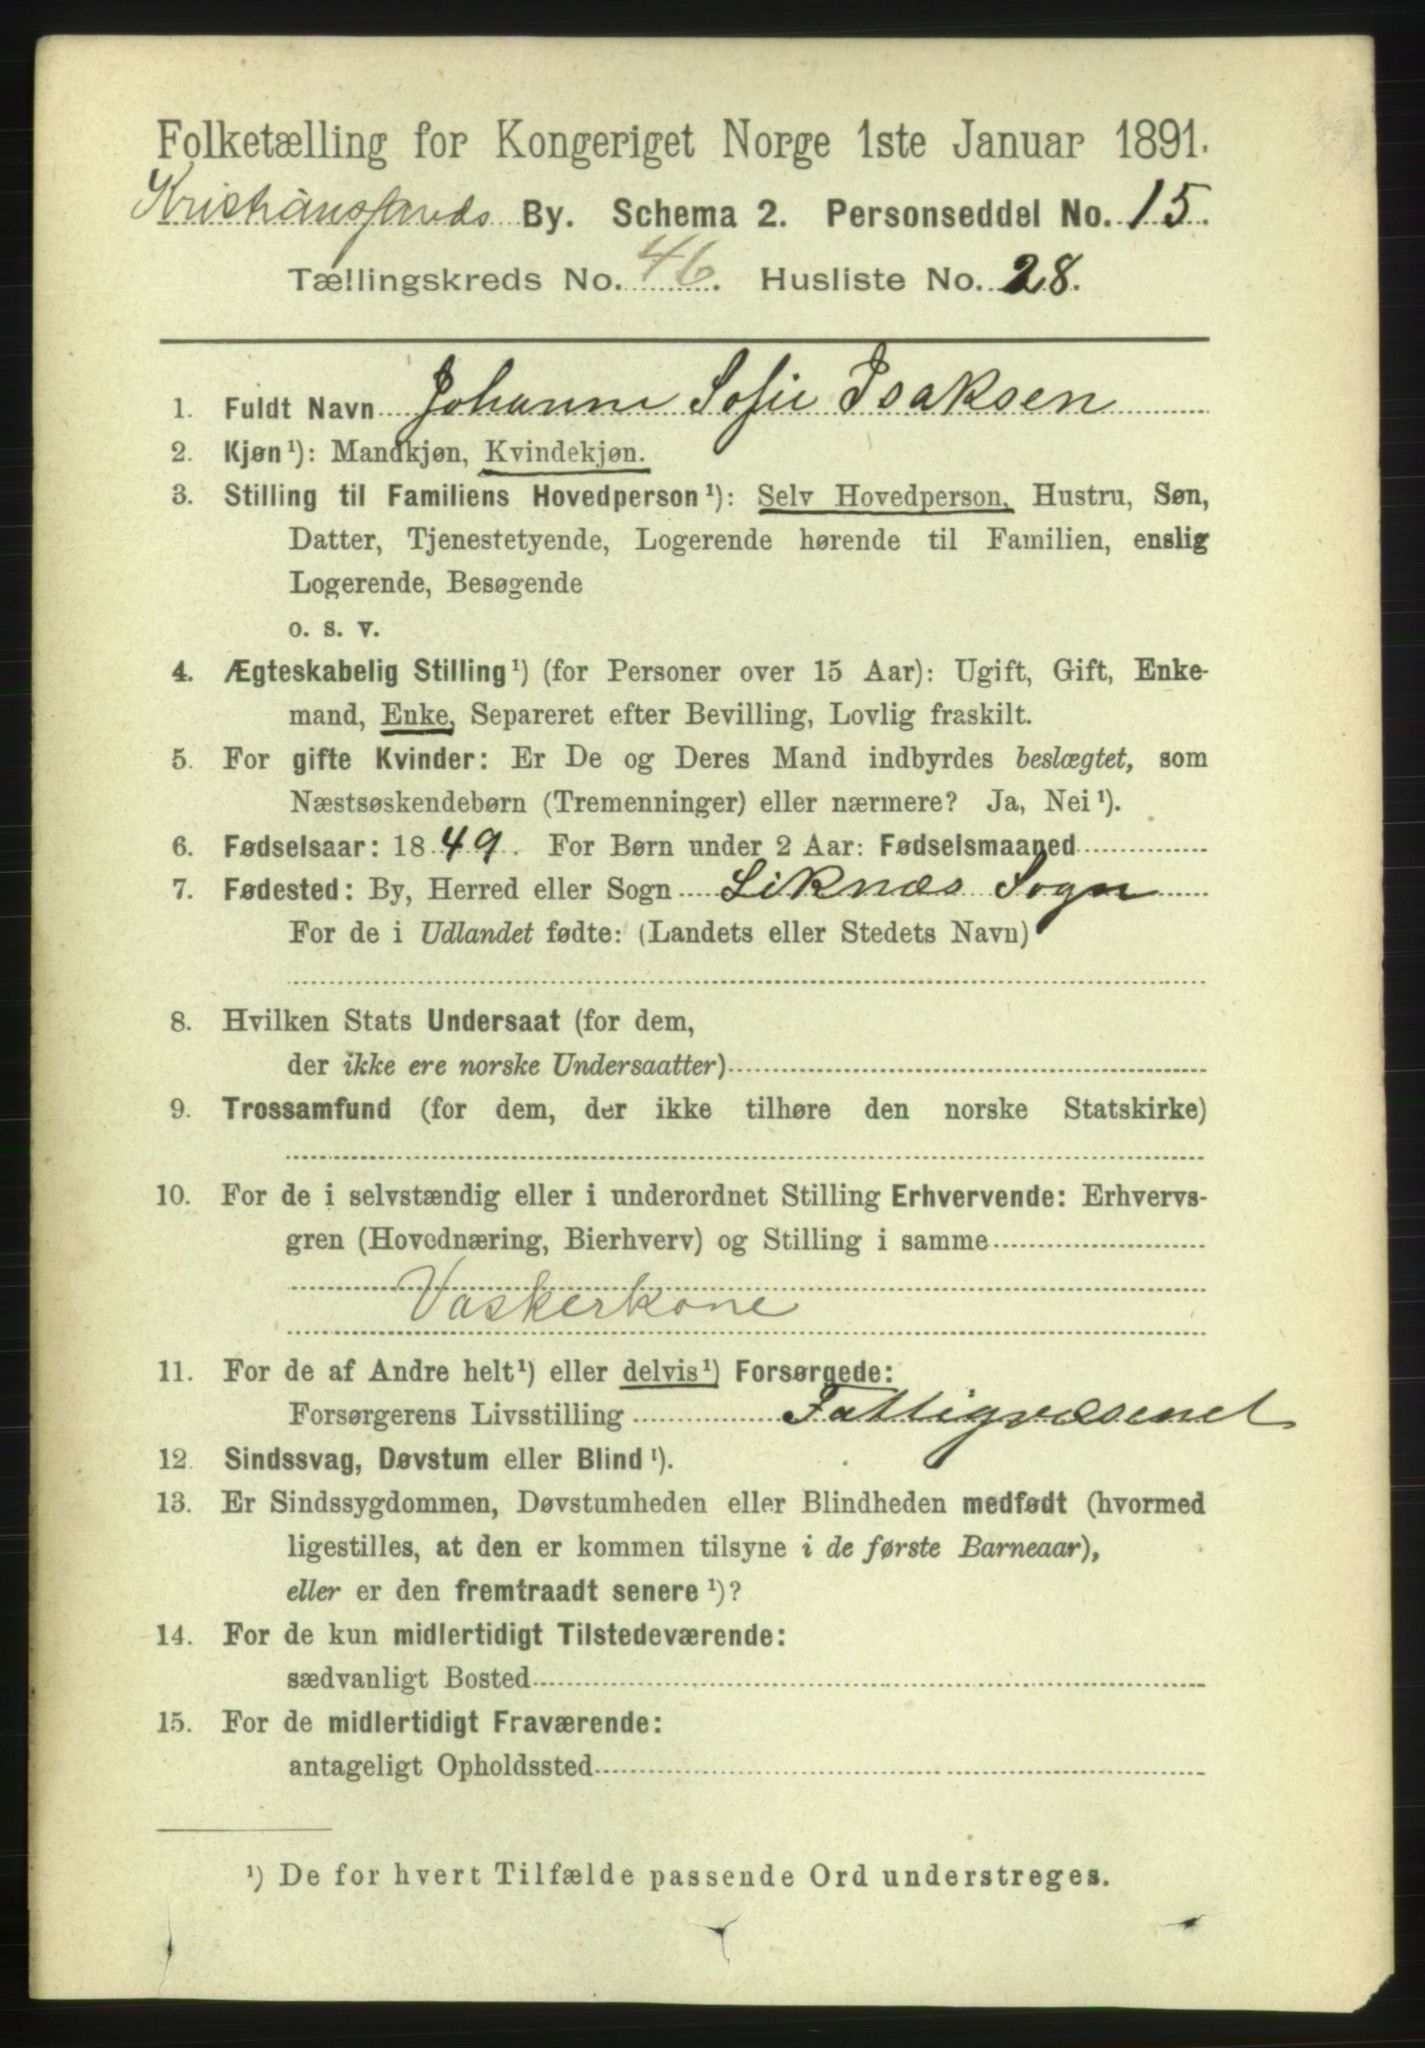 Folketælling for Kongeriget Norge 1ste Januar 1891.
Kristiansands By. Schema 2. Personseddel No. 15.
Tællingskreds No. 46. Husliste No. 28.
1. Fuldt Navn Johanne Sofie Isaksen
2. Kjøn¹): Mandkjøn, Kvindekjøn.
3. Stilling til Familiens Hovedperson¹): Selv Hovedperson, Hustru, Søn,
Datter, Tjenestetyende, Logerende hørende til Familien, enslig
Logerende, Besøgende
o. s. v.
4. Ægteskabelig Stilling¹) (for Personer over 15 Aar): Ugift, Gift, Enke-
mand, Enke, Separeret efter Bevilling, Lovlig fraskilt.
5. For gifte Kvinder: Er De og Deres Mand indbyrdes beslægtet, som
Næstsøskendebørn (Tremenninger) eller nærmere? Ja, Nei¹).
6. Fødselsaar: 1849. For Børn under 2 Aar: Fødselsmaaned
7. Fødested: By, Herred eller Sogn Liknæs Sogn
For de i Udlandet fødte: (Landets eller Stedets Navn)
8. Hvilken Stats Undersaat (for dem,
der ikke ere norske Undersaatter)
9. Trossamfund (for dem, der ikke tilhøre den norske Statskirke)
10. For de i selvstændig eller i underordnet Stilling Erhvervende: Erhvervs-
gren (Hovednæring, Bierhverv) og Stilling i samme
Vaskerkone
11. For de af Andre helt¹) eller delvis¹) Forsørgede:
Forsørgerens Livsstilling Fattigvæsenet
12. Sindssvag, Døvstum eller Blind¹).
13. Er Sindssygdommen, Døvstumheden eller Blindheden medfødt (hvormed
ligestilles, at den er kommen tilsyne i de første Barneaar),
eller er den fremtraadt senere¹)?
14. For de kun midlertidigt Tilstedeværende:
sædvanligt Bosted
15. For de midlertidigt Fraværende:
antageligt Opholdssted
¹) De for hvert Tilfælde passende Ord understreges.